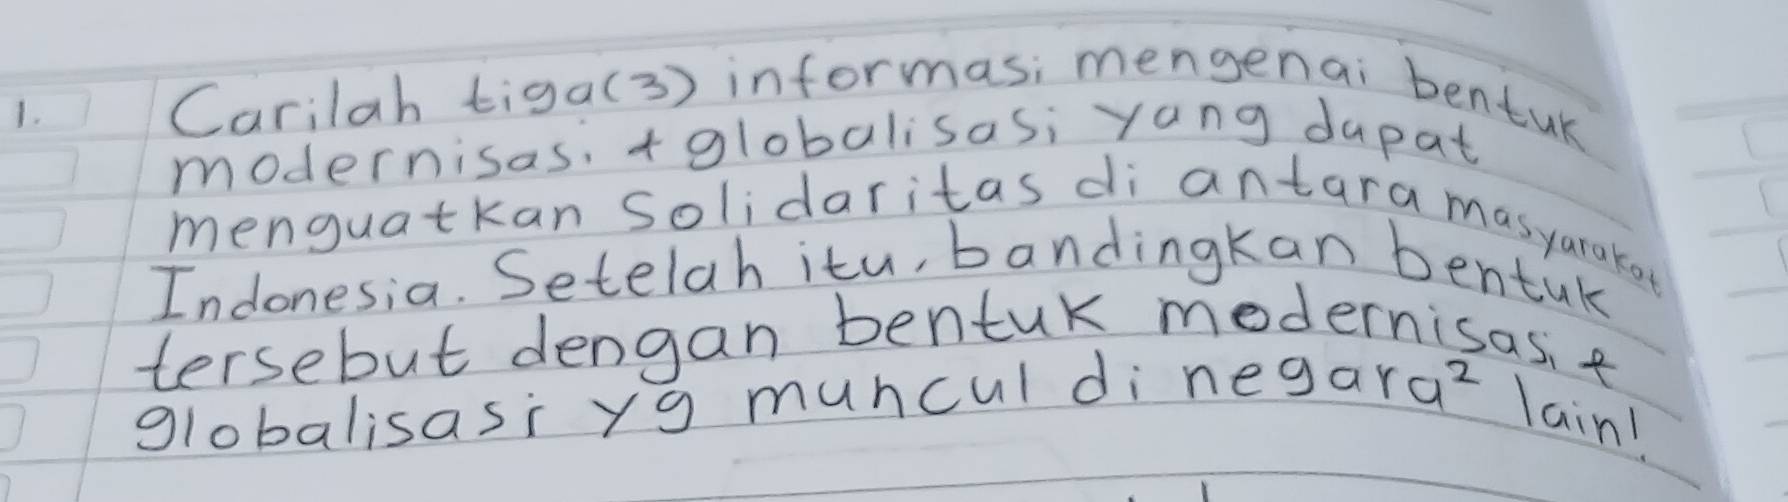 1. Carilah tiga(3) informasi mengenai bentuk
modernisasi + globalisasi yang dapat
menguatkan solidaritas di antara masyarakat
Indonesia. Setelah itu, bandingkan bentuk
tersebut dengan bentuk modernisasi +
globalisasi yg muncul di negara² lain!